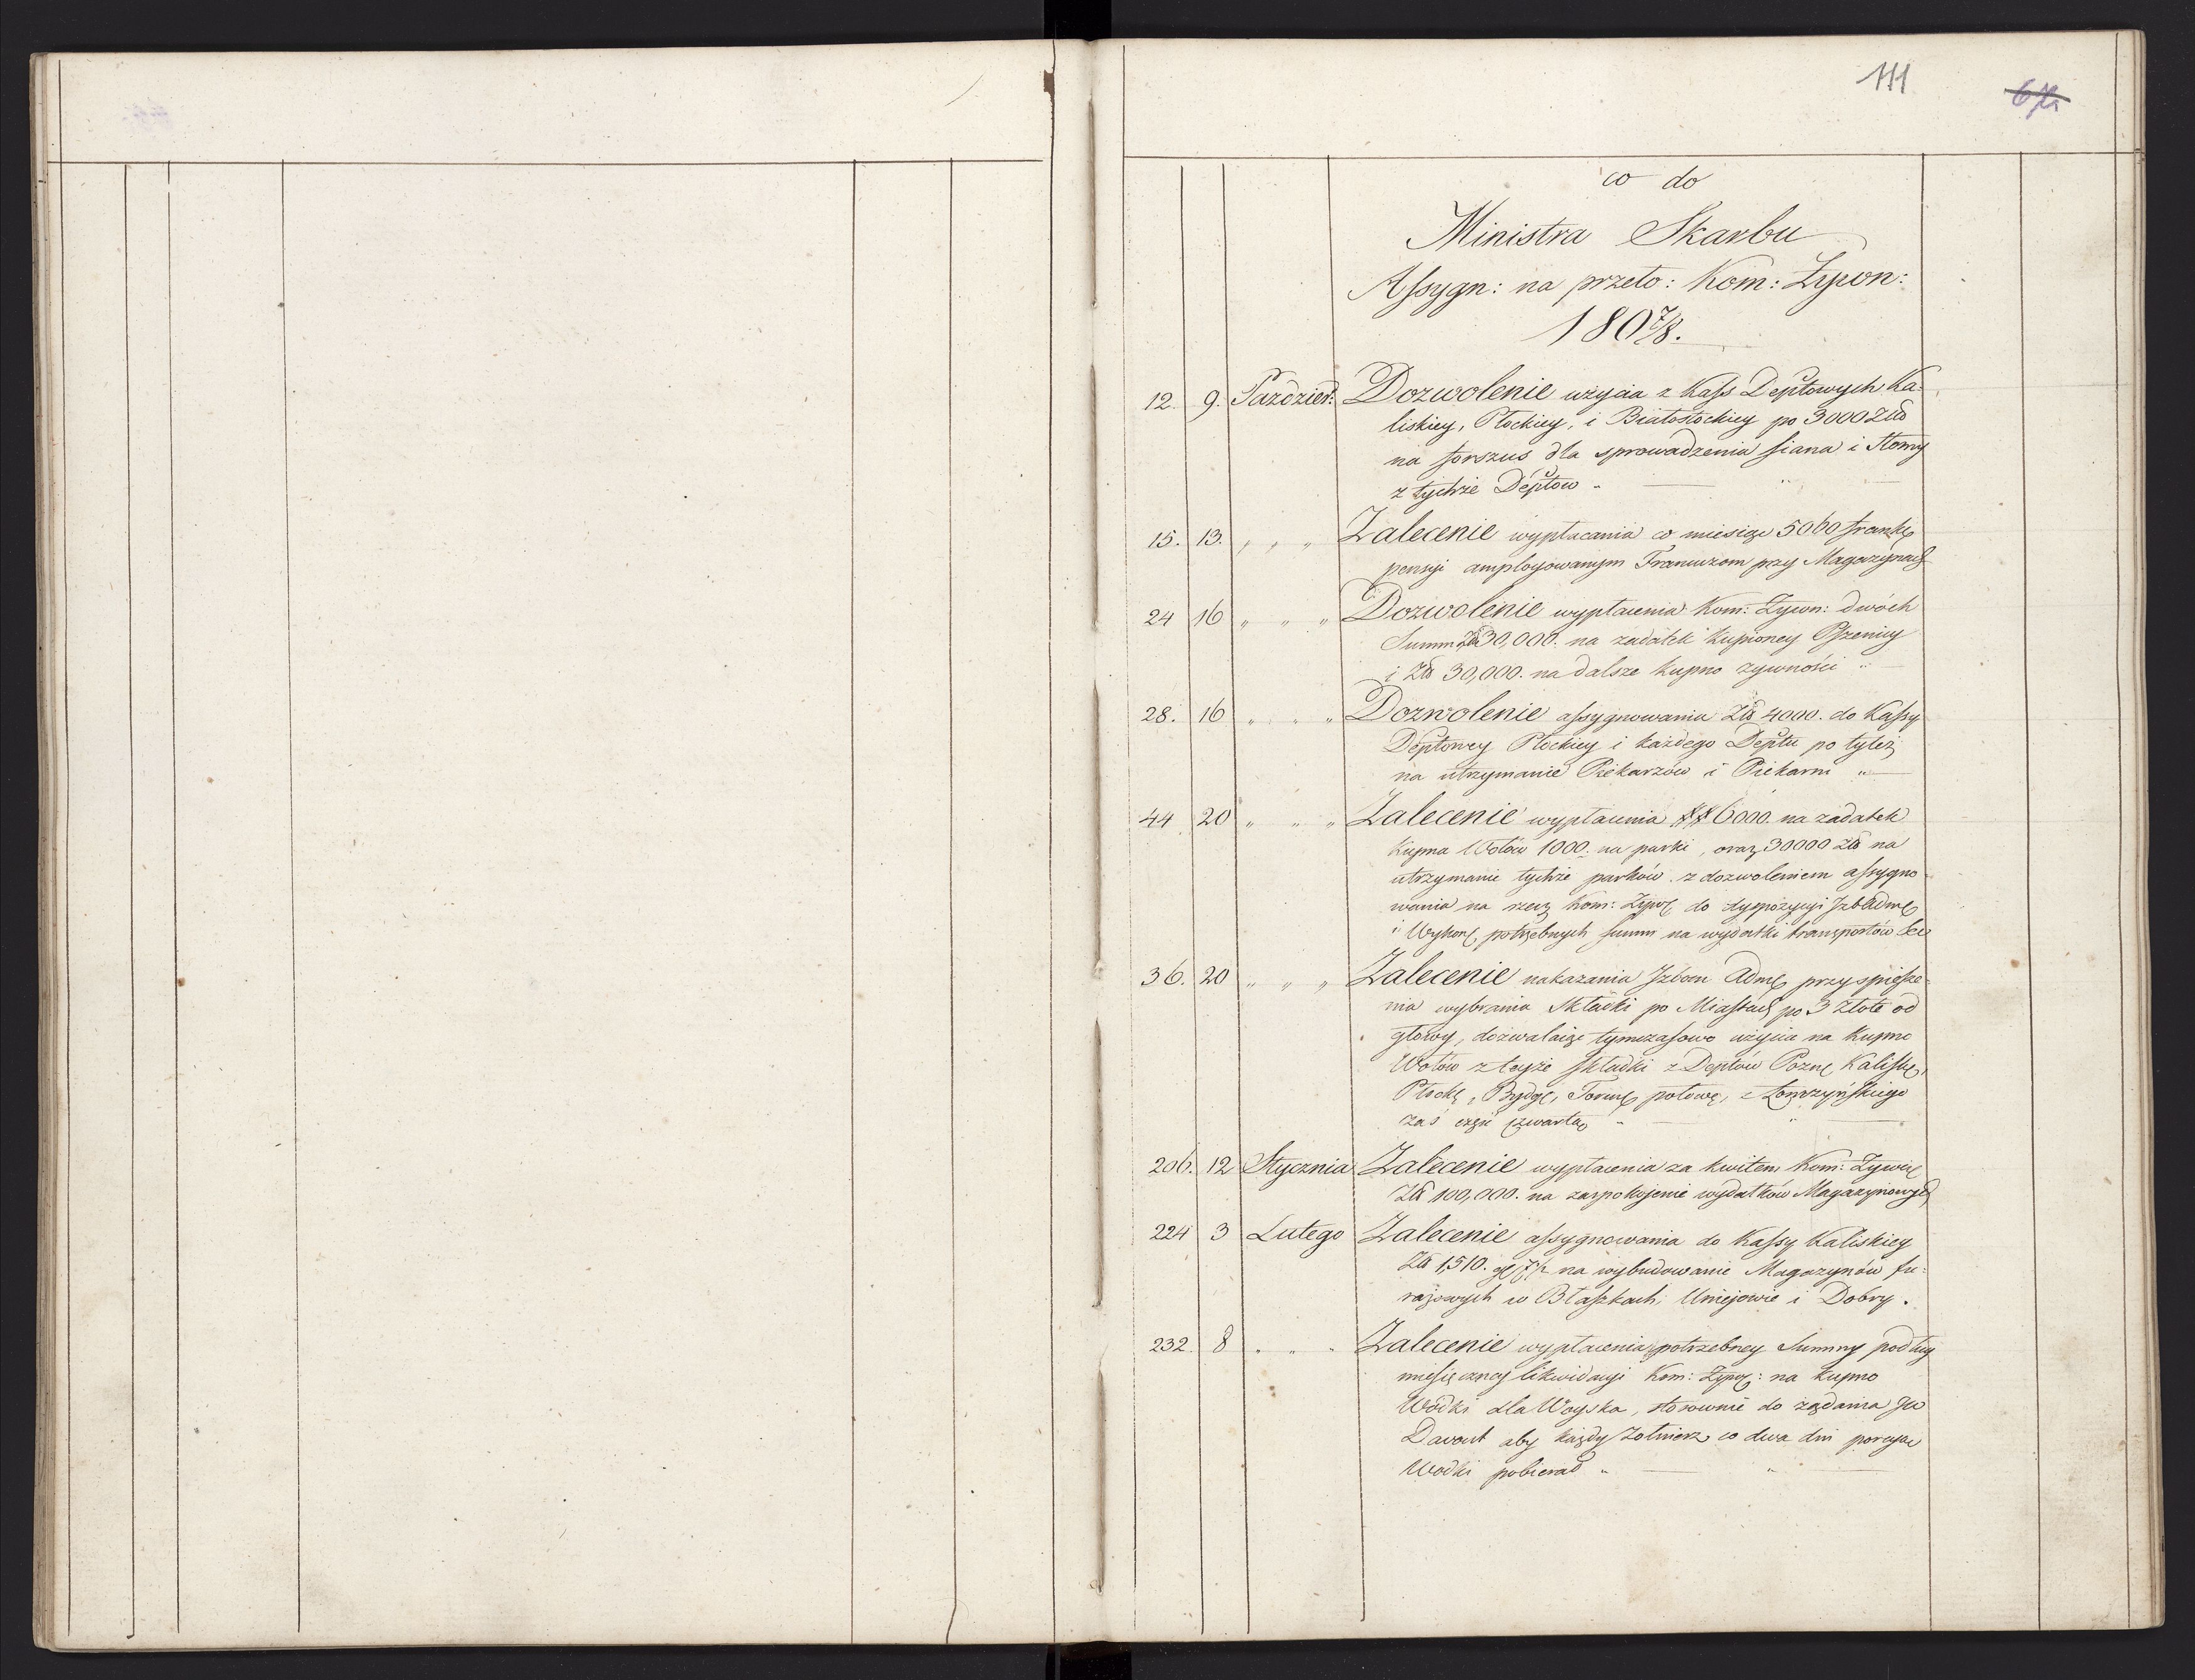 111
co do
Ministra Skarbu
Assygn: na przeto: Kom: Żywn:
1807/8.
12. 9. Paździer: Dozwolenie użycia z Kass Deptowych Ka-
liskiey, Płockiey, i Białostockiey po 3000 Złł
na forszus dla sprowadzenia siana i słomy
z tychże Deptow "
15. 13. " " " Zalecenie wypłacania co miesiąc 5060 frank
pensyi amployowanym Francuzom przy Magazynach
24 16 " " " Dozwolenie wypłacenia Kom: Żywn: dwóch
Summ, Złł 30,000. na zadatek kupioney Pszenicy
i Złł 30,000. na dalsze kupno żywności "
28. 16 " " " Dozwolenie assygnowania Złł 4000. do Kassy
Deptowey Płockiey i każdego Deptu po tyleż
na utrzymanie Piekarzów i Piekarni "
44 20 " " " Zalecenie wypłacenia ## 6000. na zadatek
Kupna Wołów 1000. na parki, oraz 30000 Złł na
utrzymanie tychże parków z dozwoleniem assygno-
wania na rzecz Kom: Żyw do dyspozycyi Izb Adm
i Wykon potrzebnych summ na wydatki transportów
36. 20 " " " Zalecenie nakazania Izbom Adm przyspiesze-
nia wybrania Składki po Miastach po 3 Złote od
głowy, dozwalaiąc tymczasowo użycia na kupno
Wołów z teyże składki z Deptów Pozn Kalisk,
Płock, Bydg, Torun połowę, z Łomżyńskiego
zaś część czwartą "
206. 12 Stycznia Zalecenie wypłacenia za kwitem Kom: Żywn
Złł 100,000. na zaspokojenie wydatków Magazynowych
224 3 Lutego Zalecenie assygnowania do Kassy Kaliskiey
Złł 1,510. na wybudowanie Magazynów fu-
rażowych w Błaszkach, Uniejowie i Dobry.
232. 8 " " " Zalecenie wypłacenia potrzebney Summy podług
miesięczney likwidacyi Kom: Żyw: na kupno
Wódki dla Woyska, stosownie do żądania
Davout aby każdy Żołnierz co dwa dni porcyą
Wódki pobierał "